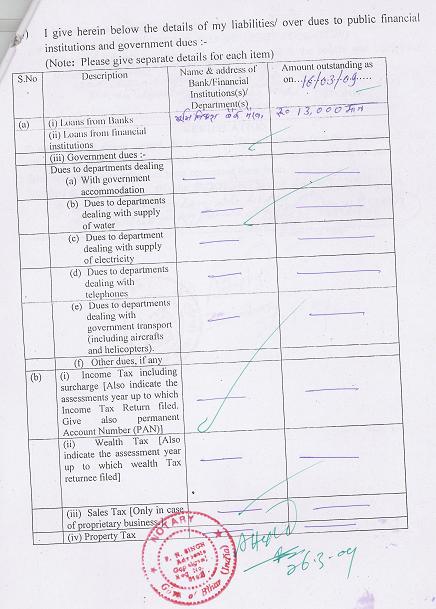 I give herein below the details of my liabilities/ over dues to public financial
institutions and government dues :-
(Note: Please give separate details for each item)
S.No Description Name & address of Bank/Financial Institutions(s)/ Department(s) Amount outstanding as on...16/03/09.....
(a) (i) Loans from Banks रु० 13,000 मात्र
(ii) Loans from financial
institutions
(iii) Government dues :-
Dues to departments dealing
(a) With government
accommodation
(b) Dues to departments
dealing with supply
of water
(c) Dues to department
dealing with supply
of electricity
(d) Dues to departments
dealing with
telephones
(e) Dues to departments
dealing with
government transport
(including aircrafts
and helicopters).
(f) Other dues, if any
(b) (i) Income Tax including
surcharge [Also indicate the
assessments year up to which
Income Tax Return filed.
Give also permanent
Account Number (PAN)]
(ii) Wealth Tax [Also
indicate the assessment year
up to which wealth Tax
returnee filed]
(iii) Sales Tax [Only in case
of proprietary business]
(iv) Property Tax
NOTARY
SINGH
Advocate
Gopalganj
Reg. No.
of Bihar (India)
26.3-09